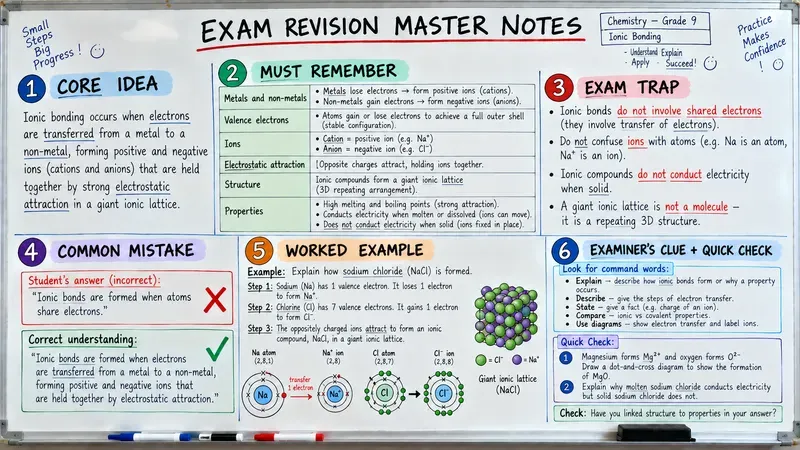 Small
Steps
Big
Progress!
EXAM REVISION MASTER NOTES
Chemistry – Grade 9
Ionic Bonding
- Understand Explain
- Apply - Succeed!
Practice
Makes
Confidence
!
1 CORE IDEA
Ionic bonding occurs when electrons
are transferred from a metal to a
non-metal, forming positive and negative
ions (cations and anions) that are held
together by strong electrostatic
attraction in a giant ionic lattice.
2 MUST REMEMBER
Metals and non-metals
• Metals lose electrons → form positive ions (cations).
• Non-metals gain electrons → form negative ions (anions).
Valence electrons
• Atoms gain or lose electrons to achieve a full outer shell
(stable configuration).
Ions
• Cation = positive ion (e.g. Na⁺)
• Anion = negative ion (e.g. Cl⁻)
Electrostatic attraction
Opposite charges attract, holding ions together.
Structure
Ionic compounds form a giant ionic lattice
(3D repeating arrangement).
Properties
• High melting and boiling points (strong attraction).
• Conducts electricity when molten or dissolved (ions can move).
• Does not conduct electricity when solid (ions fixed in place).
3 EXAM TRAP
• Ionic bonds do not involve shared electrons
(they involve transfer of electrons).
• Do not confuse ions with atoms (e.g. Na is an atom,
Na⁺ is an ion).
• Ionic compounds do not conduct electricity
when solid.
• A giant ionic lattice is not a molecule –
it is a repeating 3D structure.
4 COMMON MISTAKE
Student's answer (incorrect):
"Ionic bonds are formed when atoms
share electrons."
Correct understanding:
"Ionic bonds are formed when electrons
are transferred from a metal to a non-metal,
forming positive and negative ions that
are held together by electrostatic attraction."
5 WORKED EXAMPLE
Example: Explain how sodium chloride (NaCl) is formed.
Step 1: Sodium (Na) has 1 valence electron. It loses 1 electron
to form Na⁺.
Step 2: Chlorine (Cl) has 7 valence electrons. It gains 1 electron
to form Cl⁻.
Step 3: The oppositely charged ions attract to form an ionic
compound, NaCl, in a giant ionic lattice.
Na atom
(2,8,1)
Na⁺ ion
(2,8)
Cl atom
(2,8,7)
Cl⁻ ion
(2,8,8)
Na
transfer
1 electron
Na⁺
Cl
Cl⁻
= Cl⁻ = Na⁺
Giant ionic lattice
(NaCl)
6 EXAMINER'S CLUE + QUICK CHECK
Look for command words:
• Explain – describe how ionic bonds form or why a property
occurs.
• Describe – give the steps of electron transfer.
• State – give a fact (e.g. charge of an ion).
• Compare – ionic vs covalent properties.
• Use diagrams – show electron transfer and label ions.
Quick Check:
1 Magnesium forms Mg²⁺ and oxygen forms O²⁻.
Draw a dot-and-cross diagram to show the formation
of MgO.
2 Explain why molten sodium chloride conducts electricity
but solid sodium chloride does not.
Check: Have you linked structure to properties in your answer?